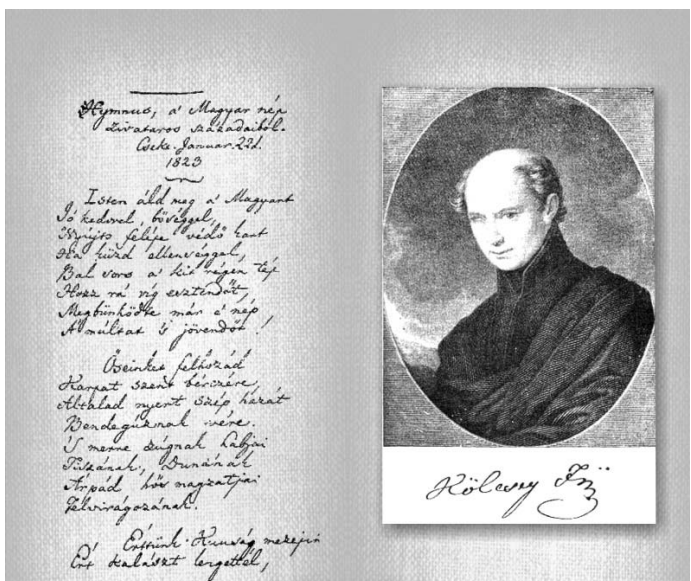 Hymnus, a' Magyar nép
zivataros századaiból.
Cseke. Januar. 22d.
1823
Isten áld meg a' Magyart
Jó kedvvel, bőséggel,
Nyújts feléje védő kart
Ha küzd ellenséggel,
Bal sors a' kit régen tép
Hozz rá víg esztendőt,
Megbűnhödte már e' nép
A' múltat 's jövendőt!
Őseinket felhozád
Kárpát szent bérczére,
Általad nyert szép hazát
Bendegúznak vére.
'S merre zúgnak habjai
Tiszának, Dunának
Árpád hős magzatjai
Felvirágozának.
Értünk Kunság mezején
Ért kalászt lengettél,
Kölcsey